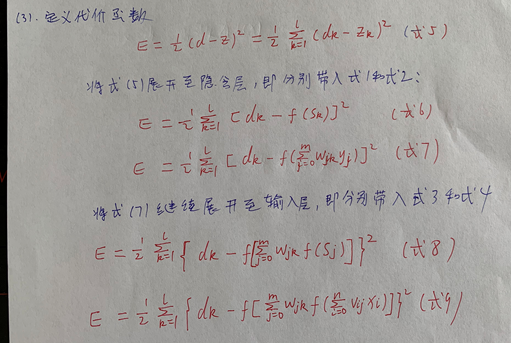 (3). 定义代价函数
E = ½ (d-z)² = ½ Σₖ₌₁ᴸ (dk - zk)² (式5)
将式(5)展开至隐含层,即分别带入式1和式2:
E = ½ Σₖ₌₁ᴸ [dk - f(Sk)]² (式6)
E = ½ Σₖ₌₁ᴸ [dk - f(Σⱼ₌₀ᵐ Wjk yj)]² (式7)
将式(7)继续展开至输入层,即分别带入式3和式4
E = ½ Σₖ₌₁ᴸ {dk - f[Σⱼ₌₀ᵐ Wjk f(Sj)]}² (式8)
E = ½ Σₖ₌₁ᴸ {dk - f[Σⱼ₌₀ᵐ Wjk f(Σᵢ₌₀ⁿ Vij xi)]}² (式9)